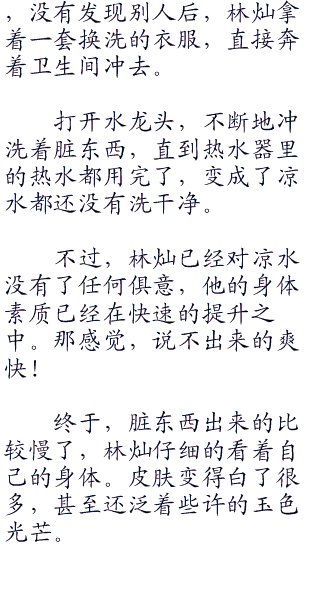 ，没有发现别人后，林灿拿
着一套换洗的衣服，直接奔
着卫生间冲去。
打开水龙头，不断地冲
洗着脏东西，直到热水器里
的热水都用完了，变成了凉
水都还没有洗干净。
不过，林灿已经对凉水
没有了任何俱意，他的身体
素质已经在快速的提升之
中。那感觉，说不出来的爽
快！
终于，脏东西出来的比
较慢了，林灿仔细的看着自
己的身体。皮肤变得白了很
多，甚至还泛着些许的玉色
光芒。